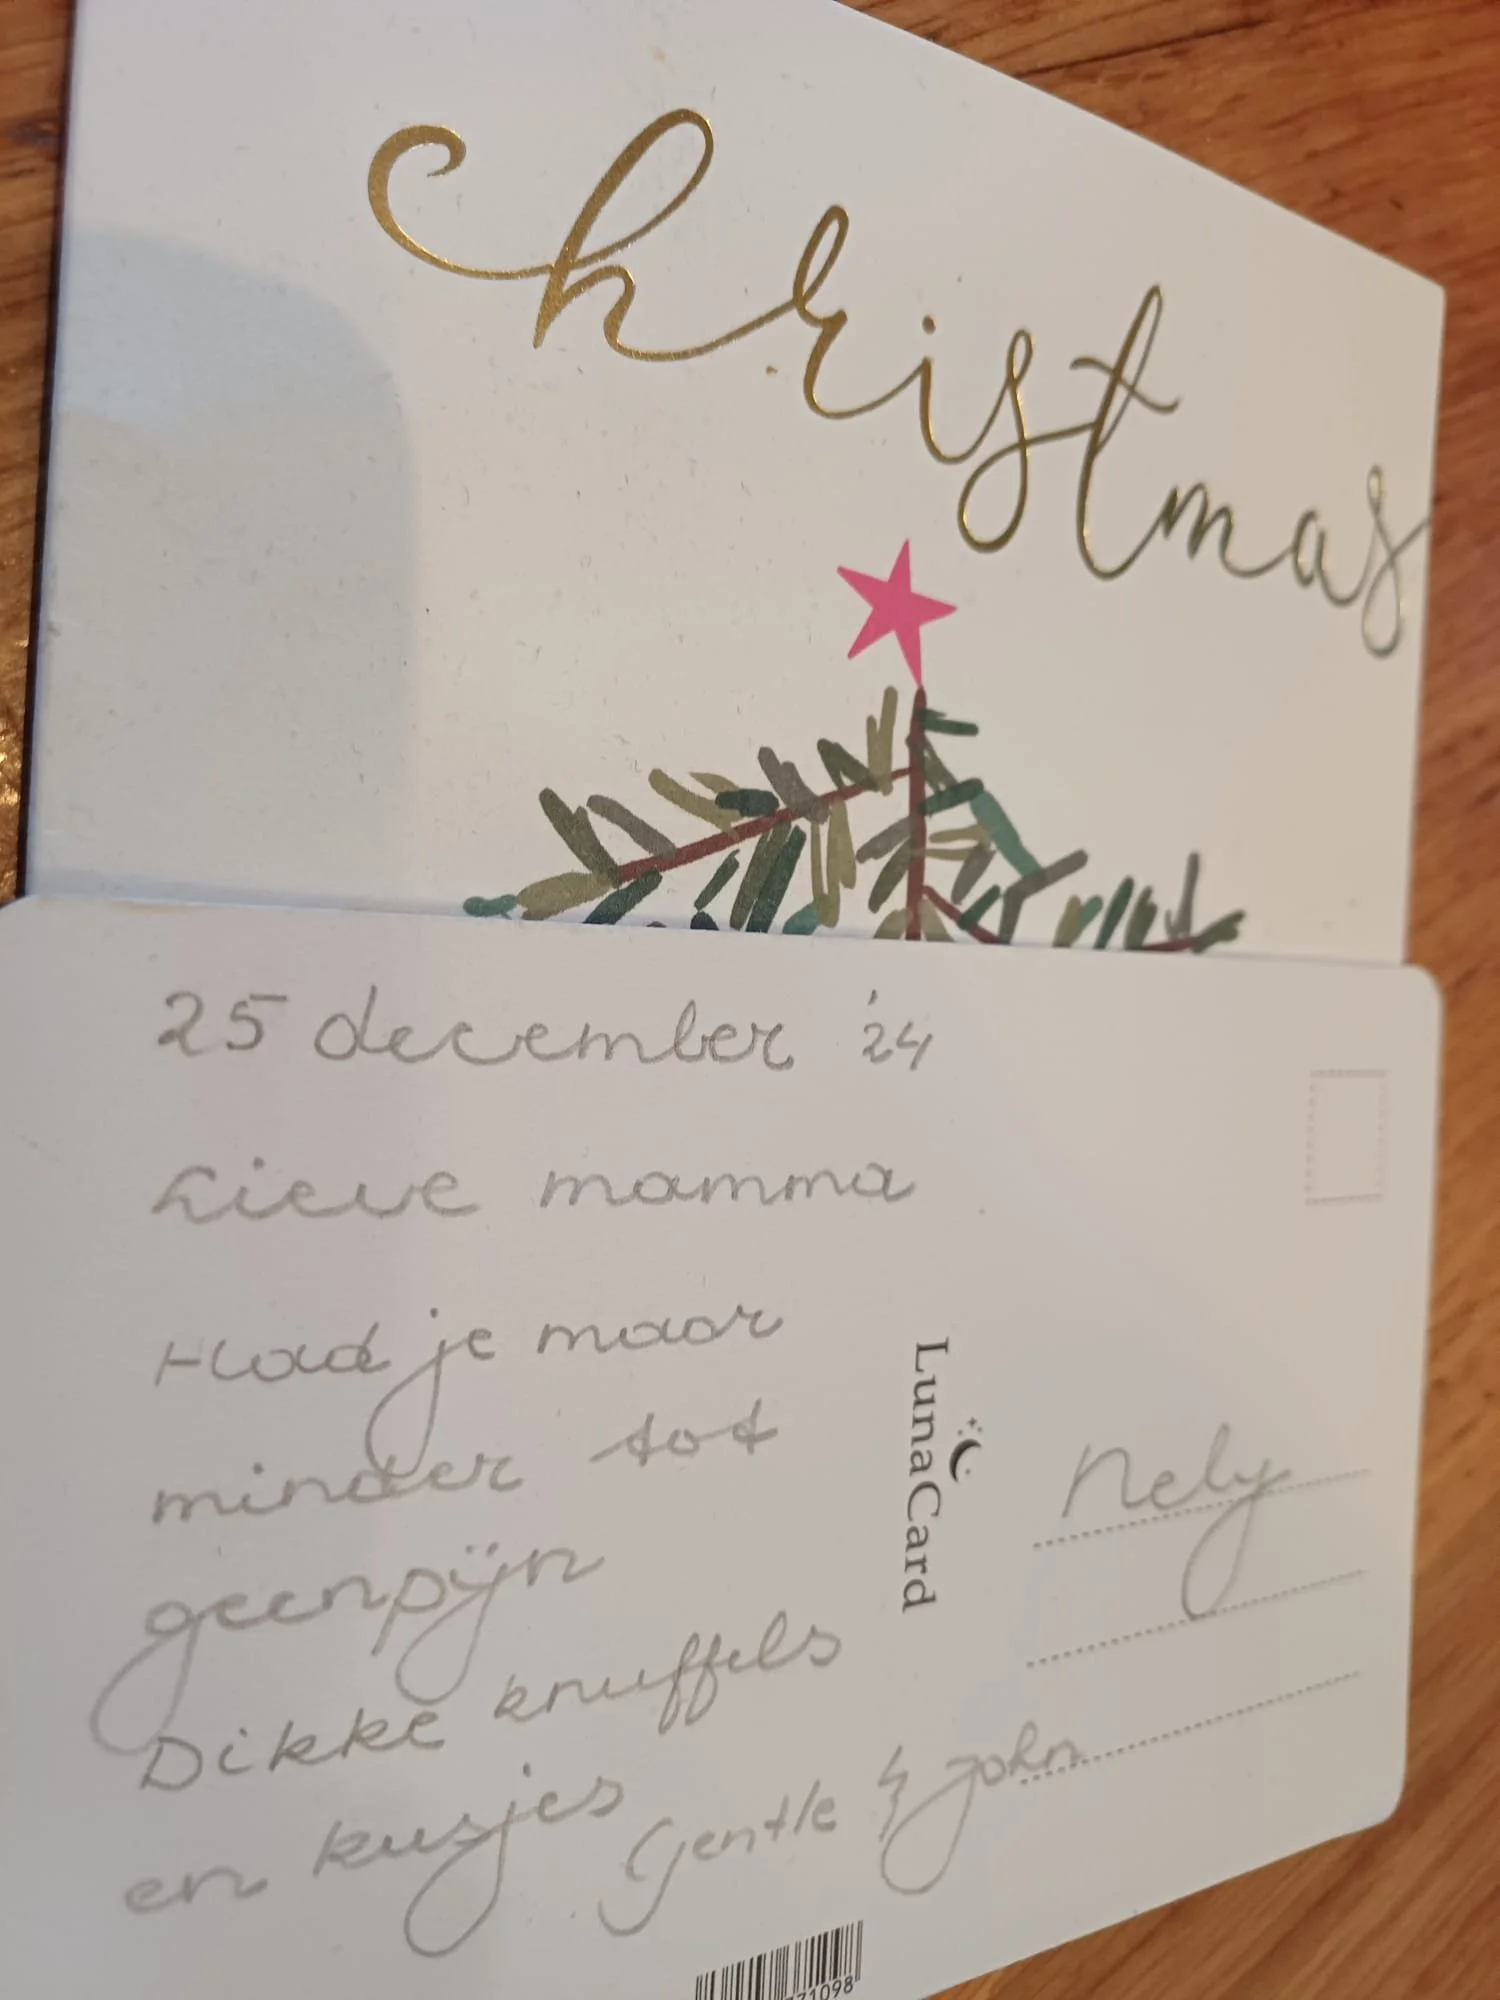 christmas
25 december '24
Lieve mamma
Had je maar
minder tot
geenpijn
Dikke knuffels
en kusjes
Gentle & John
LunaCard
Nely
71098